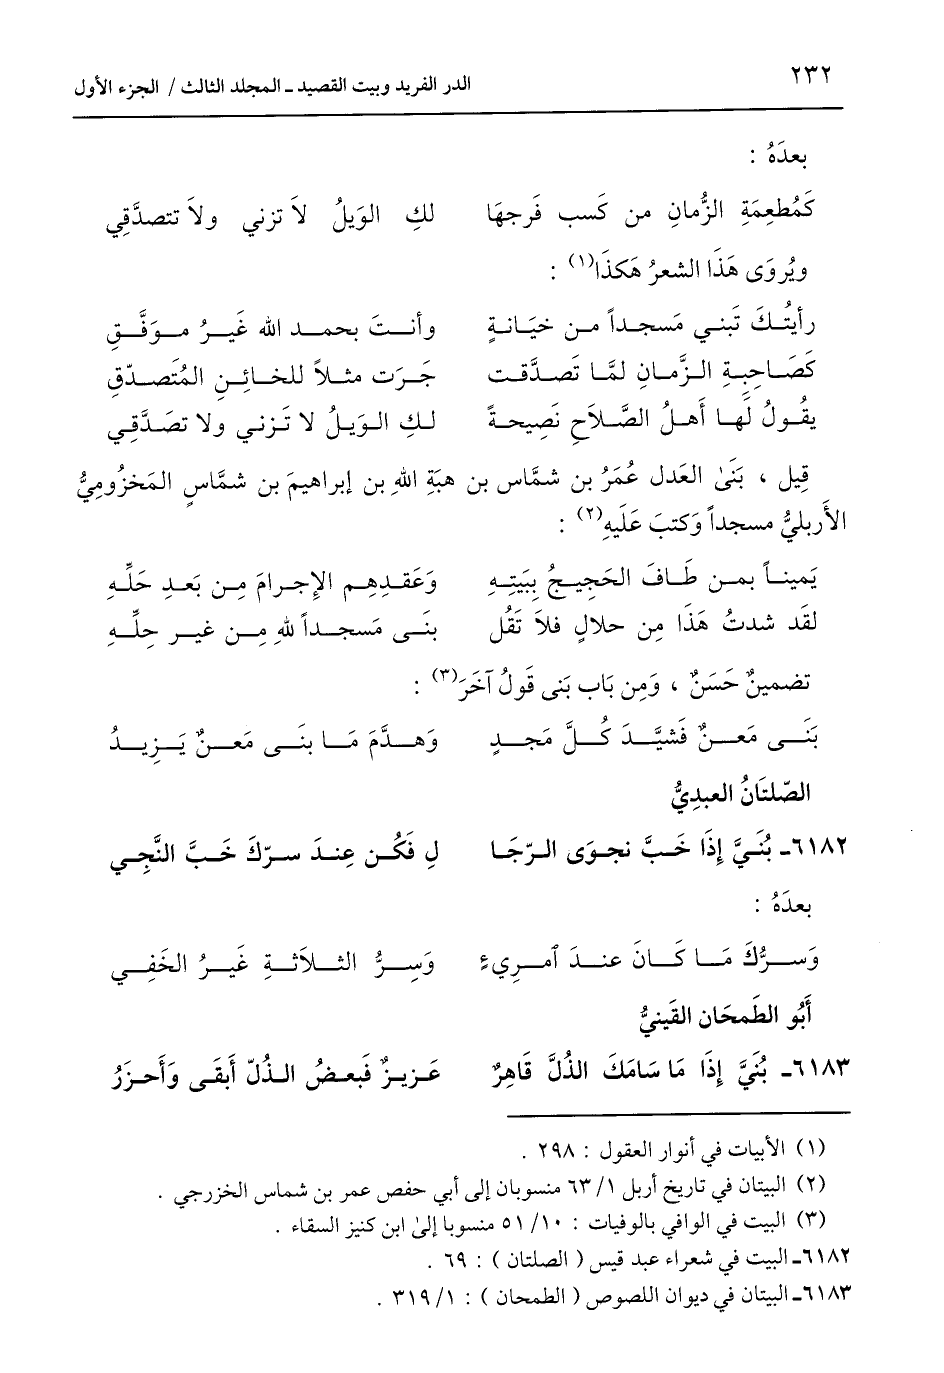 ٢٣٢ الدر الفريد وبيت القصيد ـ المجلد الثالث / الجزء الأول
بعدَهُ :
كَمُطعِمَةِ الرُّمانِ من كَسبِ فَرجِهَا لكِ الوَيلُ لاَ تزني ولاَ تتصدَّقِي
ويُروَى هَذَا الشعرُ هَكذَا(١) :
رأيتُكَ تَبني مَسجداً من خيَانةٍ وأنتَ بحمد الله غَيرُ موَفَّقِ
كَصَاحِبةِ الرَّمانِ لمَّا تَصدَّقت جَرَت مثلاً للخائنِ المُتَصدّقِ
يقُولُ لَها أهلُ الصَّلاَحِ نَصِيحةً لكِ الوَيلُ لا تَزني ولا تصَدَّقِي
قِيل ، بَنَىٰ العَدل عُمَرُ بن شمَّاس بن هبَةِ اللهِ بن إبراهيمَ بن شمَّاسٍ المَخزُوميُّ
الأَربليُّ مسجداً وَكتبَ عَلَيهِ(٢) :
يَميناً بمن طَافَ الحَجيجُ بِبَيتهِ وَعَقدِهم الإجرامَ مِن بَعدِ حَلِّهِ
لقَد شدتُ هَذَا مِن حلالٍ فلاَ تَقُل بنَى مَسجداً للهِ مِن غيرِ حِلِّهِ
تضمينٌ حَسَنٌ ، وَمِن بَاب بَنى قَولُ آخَرَ(٣) :
بَنَى مَعنٌ فَشيَّدَ كُلَّ مَجدٍ وَهدَّمَ مَا بنَى مَعنٌ يَزيدُ
الصّلتَانُ العبدِيُّ
٦١٨٢ـ بُنَيَّ إذَا خَبَّ نجوَى الرّجَا لِ فَكُن عِندَ سرّكَ خَبَّ النَّجِي
بعدَهُ :
وَسرُّكَ مَا كَانَ عندَ ٱمرِيءٍ وَسِرُّ الثلاَثةِ غَيرُ الخَفِي
أَبُو الطَمحَان القَينيُّ
٦١٨٣ـ بُنَيَّ إذَا مَا سَامَكَ الذُلَّ قَاهِرٌ عَزيزٌ فَبعضُ الذُلّ أَبقَى وَأَحزَرُ
(١) الأبيات في أنوار العقول : ٢٩٨ .
(٢) البيتان في تاريخ أربل ١/ ٦٣ منسوبان إلى أبي حفص عمر بن شماس الخزرجي .
(٣) البيت في الوافي بالوفيات : ١٠/ ٥١ منسوبا إلىٰ ابن كنيز السقاء .
٦١٨٢ـ البيت في شعراء عبد قيس ( الصلتان ) : ٦٩ .
٦١٨٣ـ البيتان في ديوان اللصوص ( الطمحان ) : ١/ ٣١٩ .